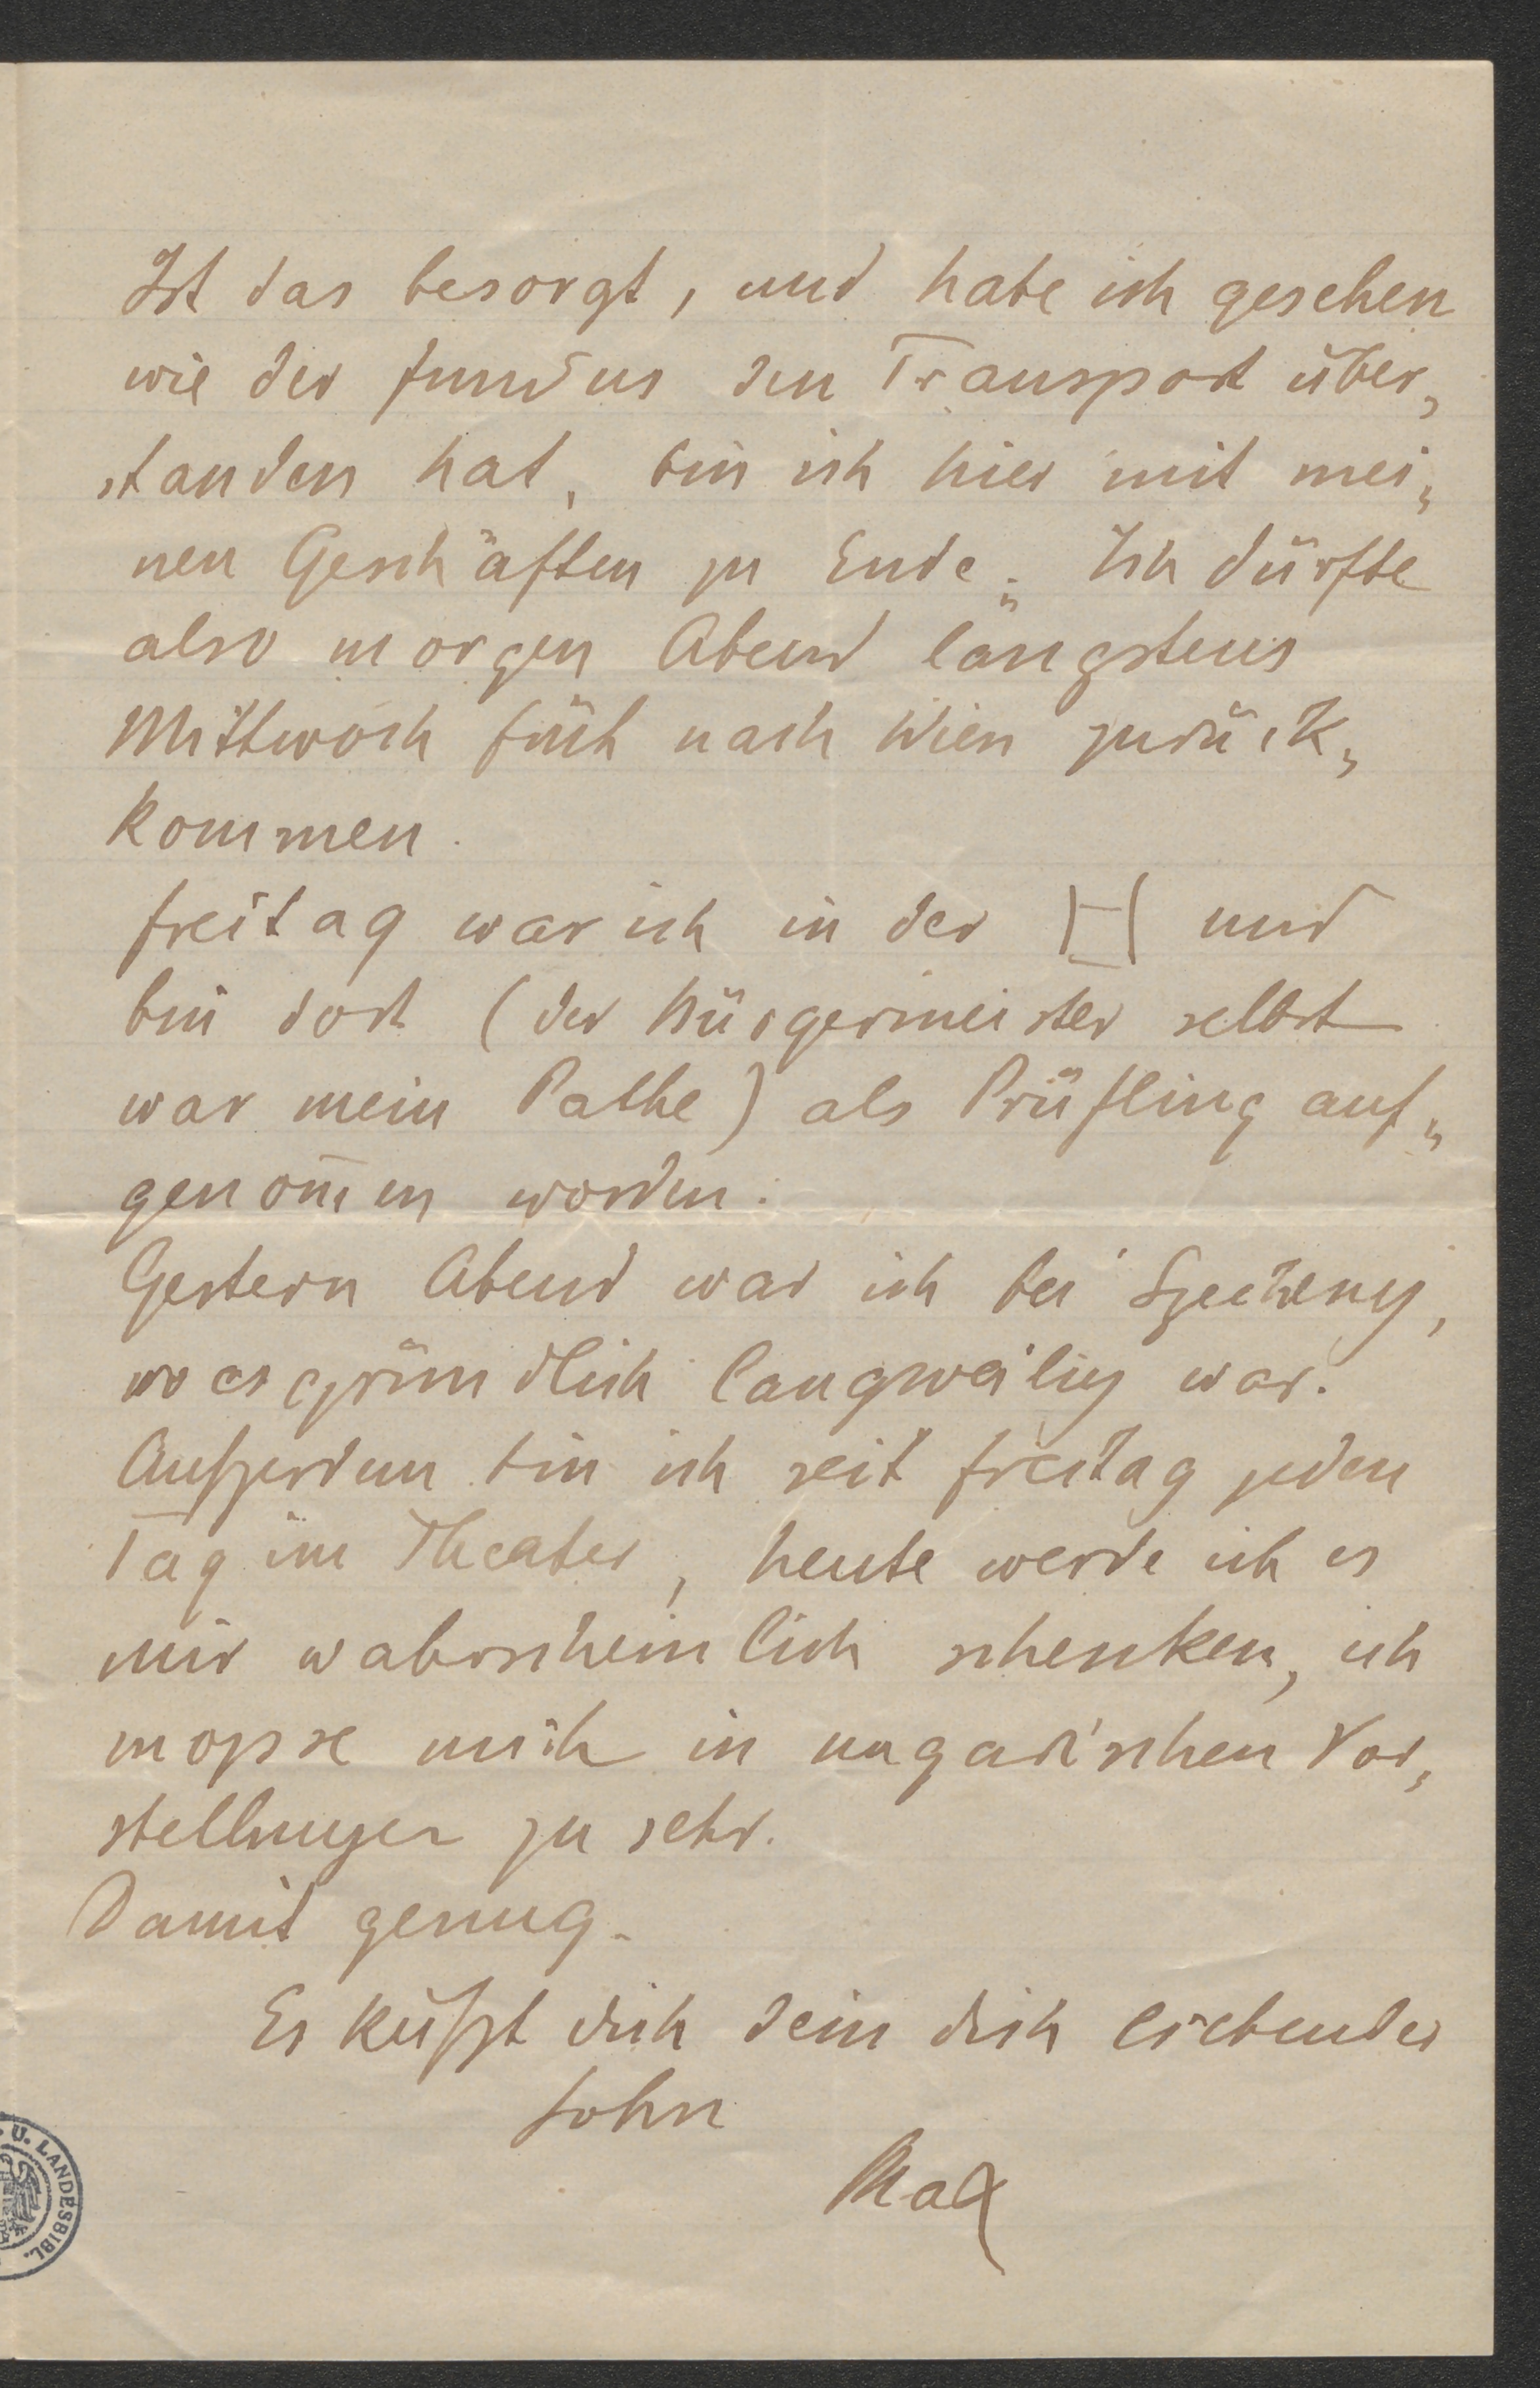 Ist das besorgt, und habe ich gesehen
wie der fundus den Transport über„
standen hat, bin ich hier mit mei„
nen Geschäften zu Ende. Ich dürfte
also morgen Abend längstens
Mittwoch früh nach Wien zurück„
kommen.
Freitag war ich in der und
bin dort (der Bürgermeister selbst
war mein Pathe) als Prüfling auf„
genom̅en worden.
Gestern Abend war ich bei
wo es gründlich langweilig war.
Außerdem bin ich seit Freitag jeden
Tag im Theater, heute werde ich es
mir wahrscheinlich schenken, ich
mopse mich in ungarischen Vor„
stellungen zu sehr.
Damit genug.
Es küßt dich dein dich liebender
Sohn
Max
U. LANDESBIBL.